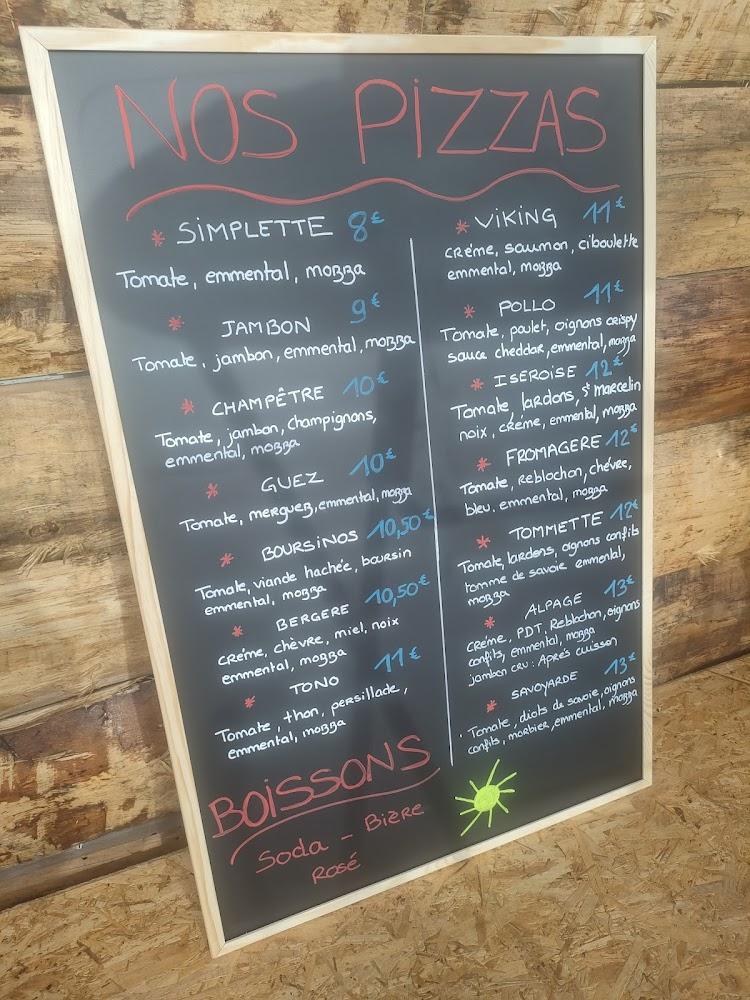 NOS PIZZAS
* SIMPLETTE 8€
Tomate, emmental, mozza
* JAMBON 9€
Tomate, jambon, emmental, mozza
* CHAMPÊTRE 10€
Tomate, jambon, champignons,
emmental, mozza
* GUEZ 10€
Tomate, merguez, emmental, mozza
* BOURSINOS 10,50€
Tomate, viande hachée, boursin
emmental, mozza
* BERGERE 10,50€
Créme, chèvre, miel, noix
emmental, mozza
* TONO 11€
Tomate, thon, persillade,
emmental, mozza
* VIKING 11€
Créme, saumon, ciboulette
emmental, mozza
* POLLO 11€
Tomate, poulet, oignons crispy
sauce cheddar, emmental, mozza
* ISEROISE 12€
Tomate, lardons, St marcelin
noix, créme, emmental, mozza
* FROMAGERE 12€
Tomate, Reblochon, chévre,
bleu, emmental, mozza
* TOMMETTE 12€
Tomate, lardons, oignons confits
tomme de savoie emmental,
mozza
* ALPAGE 13€
Créme, PDT, Reblochon, oignons
confits, emmental, mozza
jambon cru : Aprés cuisson
* SAVOYARDE 13€
Tomate, diots de savoie, oignons
confits, morbier, emmental, mozza
BOISSONS
Soda - Bière
Rosé